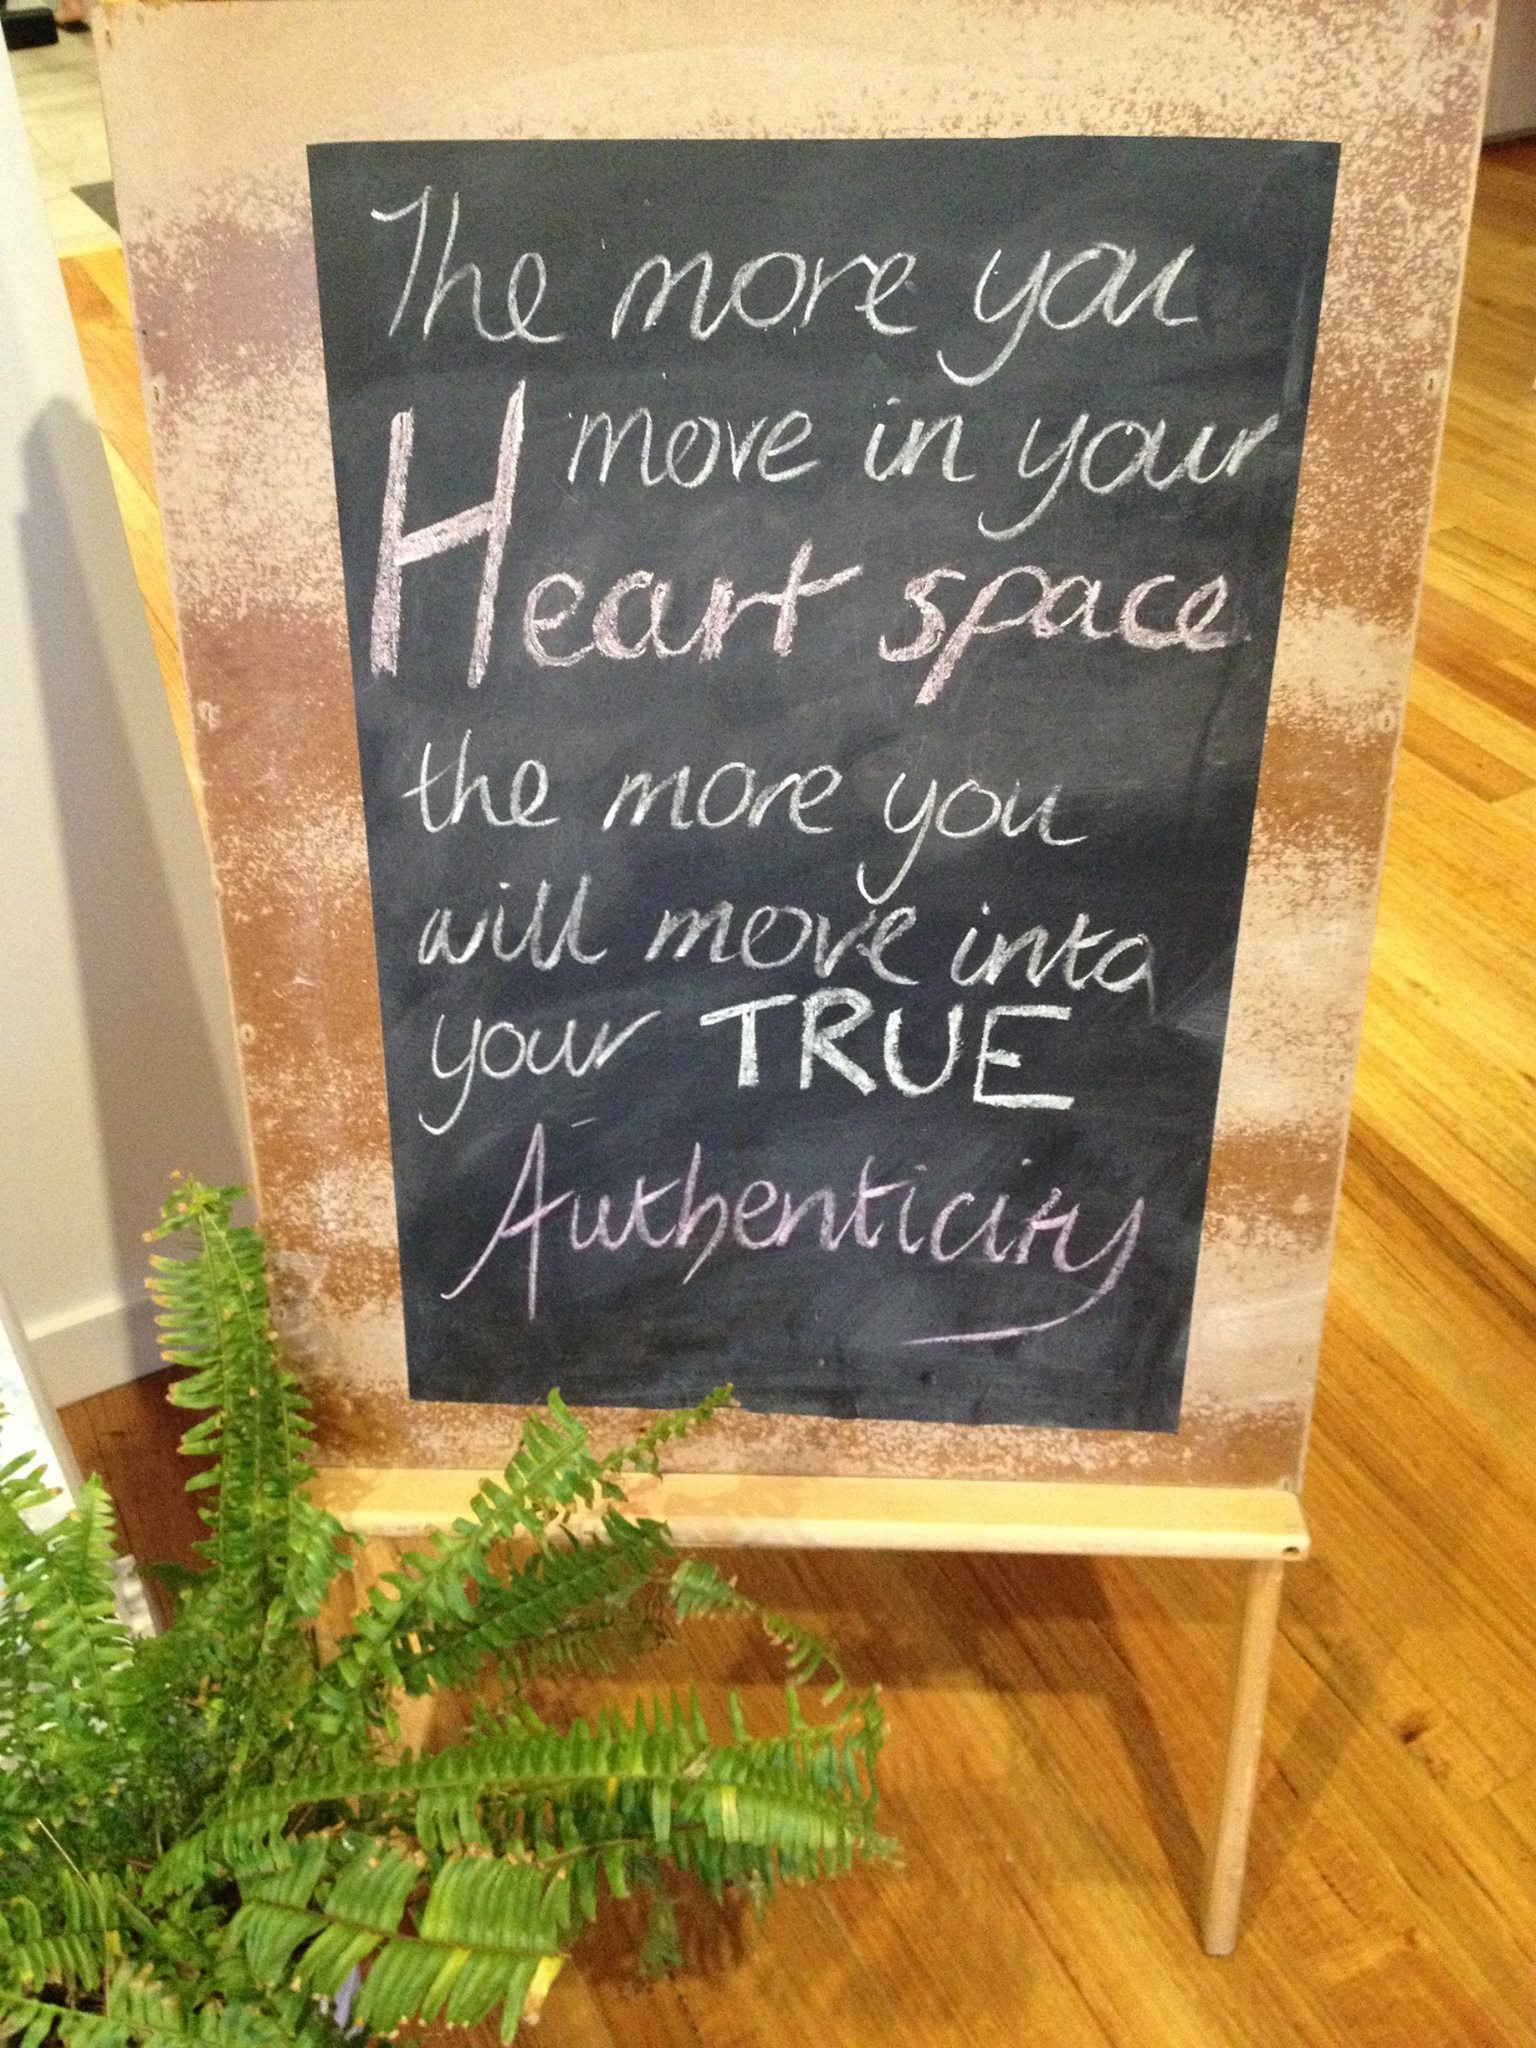 The more you
move in your
Heart space
the more you
will move into
your TRUE
Authenticity